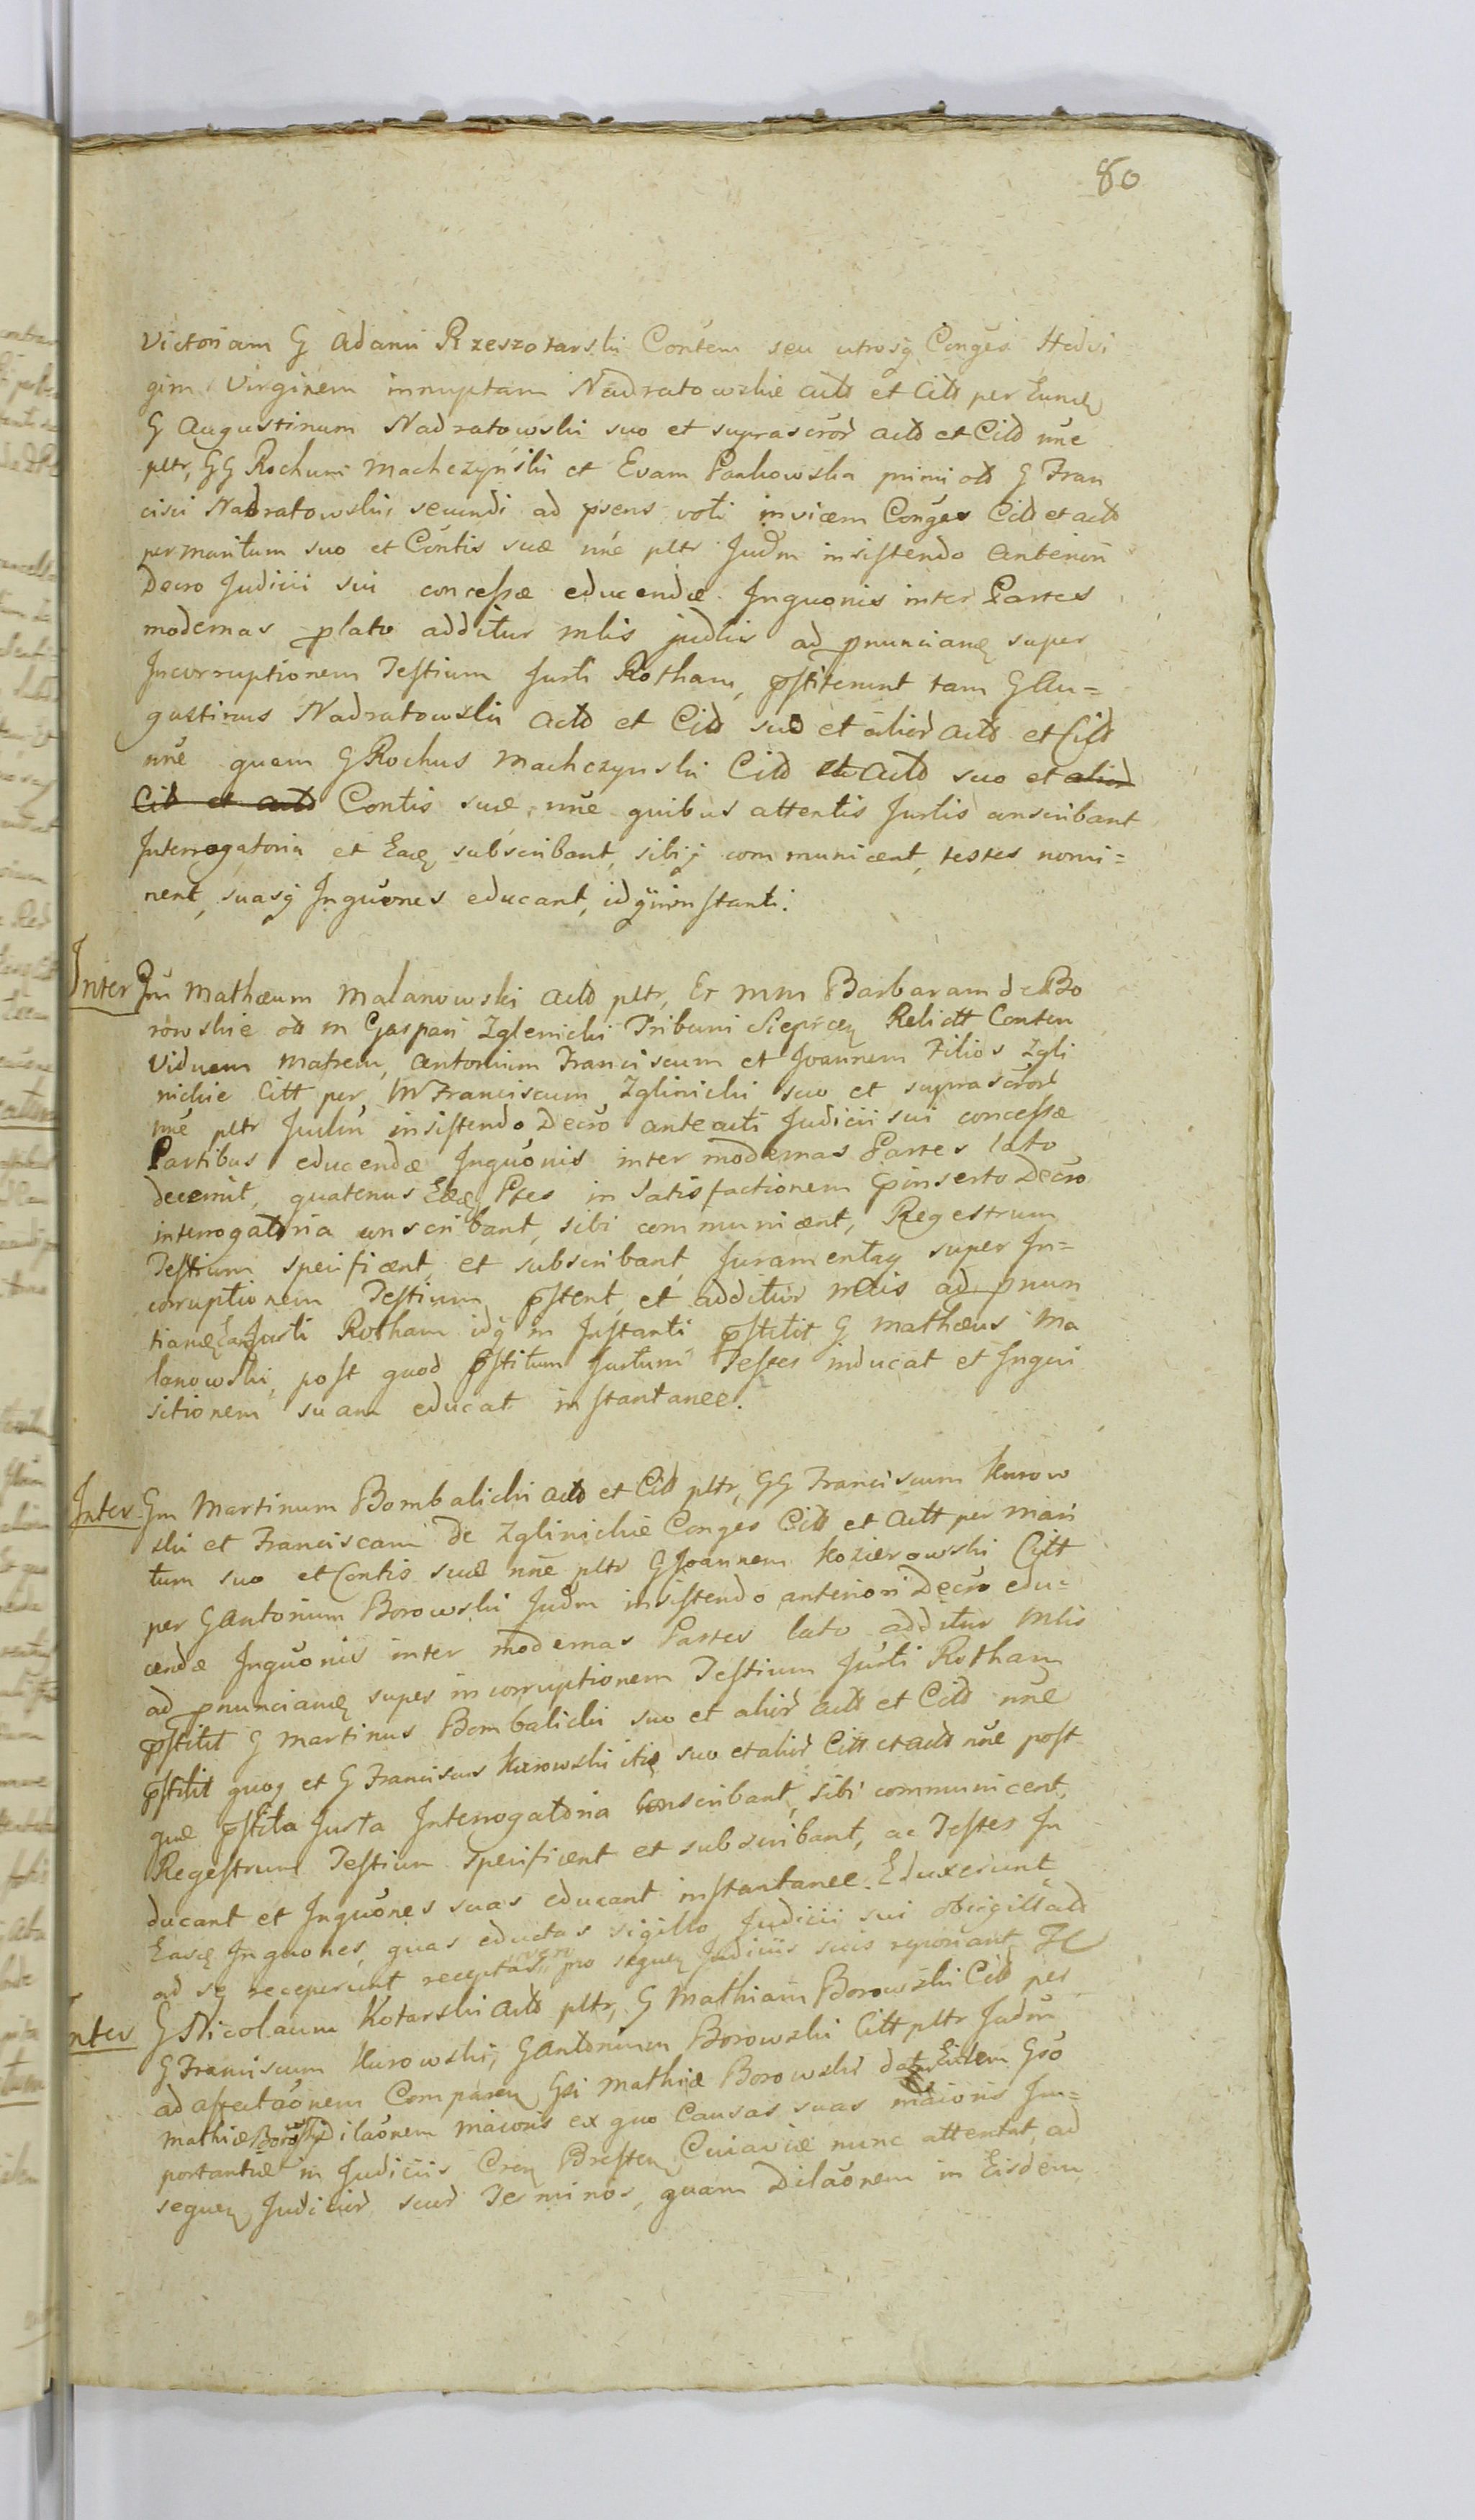 80
Victoriam G Adami Rzeszotarski Contem seu utrosq Conges Hedvi
gim Virginem innuptam Nadratowskie actt et Citt per Eundę
G Augustinum Nadratowski suo et suprascror actt et Citt nne
pltr, GG Rochum Machczyński et Evam Pankowska primi ott G Fran
cisci Nadratowski, secundi ad psens voti invicem Conges Citt et actt
per maritum suo et Contis suæ nne pltr Judm insistendo Anteriori
Decro Judicii sui concessæ educendæ Inquonis inter Partes
modernas plato additur mlis judlis ad pnuncianę super
Incorruptionem Testium Jurti Rotham, pstiterunt tam G Au=
gustinus Nadratowski actt et Citt suo et alior actt et Citt
nne quam G Rochus Machczynski Citt et actt suo et alior
Cit et actt Contis suæ nne quibus attentis Jurtis conscribant
Interrogatoria et Eaę subscribant, sibiq communicent, testes nomi=
nent, suasq Inquones educant, idq in instanti.
Inter Gm Mathæum Malanowski actt pltr, Et mm Barbaram de Bo
rowskie ott m Gaspari Zglenicki Tribuni Sieprcen Relictt Contem
Viduam Matrem, Antonium Franciscum et Joannem Filios Zgli
nickie Citt per M Franciscum Zglinicki suo et suprascror
nne pltr Judm insistendo Decro anteacti Judicii sui concessæ
Partibus educendæ Inquonis inter modernas Partes lato
decernit, quatenus Eæę Ptes in satisfactionem pinserto Decro
interrogatoria conscribant, sibi communicent, Regestrum
Testium specificent, et subscribant, Juramentaq super In=
corruptionem Testium pstent, et additur mlis ad pnun
tianę Jurti Rotham idq in Instanti pstitit G Mathæus Ma
lanowski, post quod pstitum Jurtum Testes inducat et Inqui
sitionem suam educat instantanee.
Inter Gm Martinum Bombalicki actt et Citt pltr, GG Franciscum Kurow
ski et Franciscam de Zglinickie Conges Citt et actt per mari
tum suo et Contis suæ nne pltr G Joannem Kozierowski Citt
per G Antonium Borowski Judm insistendo anteriori Decro edu=
cendæ Inquonis inter modernas Partes lato additur mlis
ad pnuncianę super incorruptionem Testium Jurti Rotham
pstitit G Martinus Bombalicki suo et alior actt et Citt nne
pstitit quoq et G Franciscus Kurowski itię suo et alior Citt et actt nne post
quæ pstita Jurta Interrogatoria conscribant, sibi communicent,
Regestrum Testium specificent et subscribant, ac Testes In
ducant et Inquones suas educant instantanee. Eduxerunt
Easę Inquones, quas eductas sigillo Judicii sui obsigillatt
ad se receperunt receptas vero pro sequen Judiciis suis reponant
Inter G Nicolaum Kotarski actt pltr, G Mathiam Borowski Citt per
G Franciscum Kurowski, G Antonium Borowski Citt pltr Judm
ad affectaonem Comparen Gsi Mathiæ Borowski dat Eidem Gso
Mathiæ Borowski Dilaonem maioris ex quo Causas suas maioris Im=
portantiæ in Judiciis Cren Bresten Cuiaviæ nunc attentat, ad
sequen Judicior suor Terminos, quam Dilaonem in Eisdem